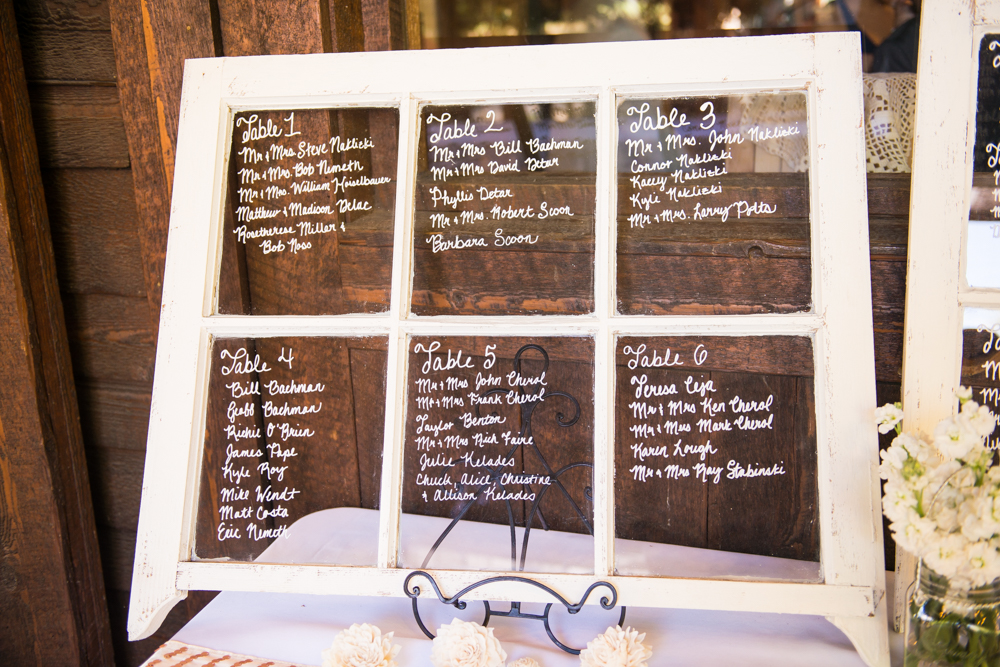 Table 1
Mr + Mrs. Steve Naklicki
Mr + Mrs. Bob Nemeth
Mr + Mrs. William Heiselbauer
Matthew + Madison Delac
Rosetherese Miller +
Bob Noss
Table 2
Mr + Mrs. Bill Bachman
Mr + Mrs David Detar
Phyllis Detar
Mr + Mrs. Robert Scoon
Barbara Scoon
Table 3
Mr + Mrs. John Naklicki
Connor Naklicki
Kacey Naklicki
Kyle Naklicki
Mr + Mrs. Larry Polts
Table 4
Bill Bachman
Geoff Bachman
Richie O'Brien
James Pape
Kyle Roy
Mike Wendt
Matt Costa
Eric Nemeth
Table 5
Mr + Mrs John Cherol
Mr + Mrs. Frank Cherol
Taylor Benton
Mr + Mrs Rich Faire
Julie Kelades
Chuck, Alice, Christine
+ Allison Kelades
Table 6
Teresa Ceja
Mr + Mrs Ken Cherol
Mr + Mrs Mark Cherol
Karen Lough
Mr + Mrs Ray Stabinski